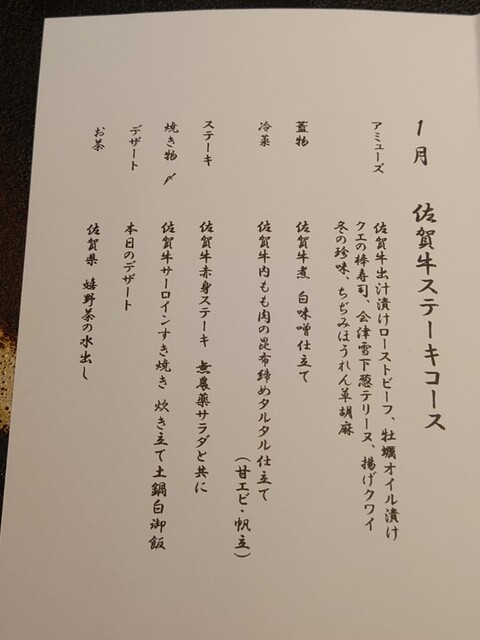 1月 佐賀牛ステーキコース
アミューズ 佐賀牛出汁漬けローストビーフ、牡蠣オイル漬け
クエの棒寿司、会津雪下葱テリーヌ、揚げクワイ
冬の珍味、ちぢみほうれん草胡麻
蓋物 佐賀牛煮 白味噌仕立て
冷菜 佐賀牛内もも肉の昆布締めタルタル仕立て
(甘エビ・帆立)
ステーキ 佐賀牛赤身ステーキ 無農薬サラダと共に
焼き物 〆 佐賀牛サーロインすき焼き 炊き立て土鍋白御飯
デザート 本日のデザート
お茶 佐賀県 嬉野茶の水出し